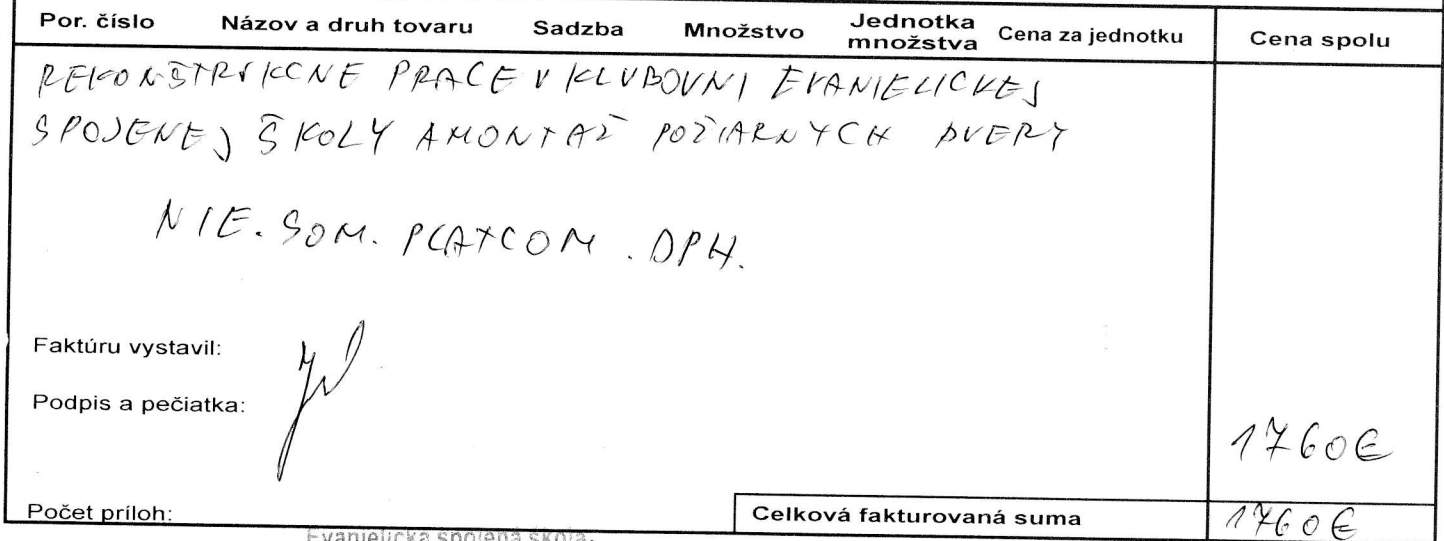 Por. číslo Názov a druh tovaru Sadzba Množstvo Jednotka množstva Cena za jednotku Cena spolu
REKONŠTRUKCNE PRACE V KLUBOVNI EVANIELICKEJ
SPOJENEJ ŠKOLY A MONTAŽ POŽIARNYCH DVERY
NIE. SOM. PLATCOM. DPH.
Faktúru vystavil:
Podpis a pečiatka:
1760€
Počet príloh: Celková fakturovaná suma 1760€
Evanjelická spojená škola,